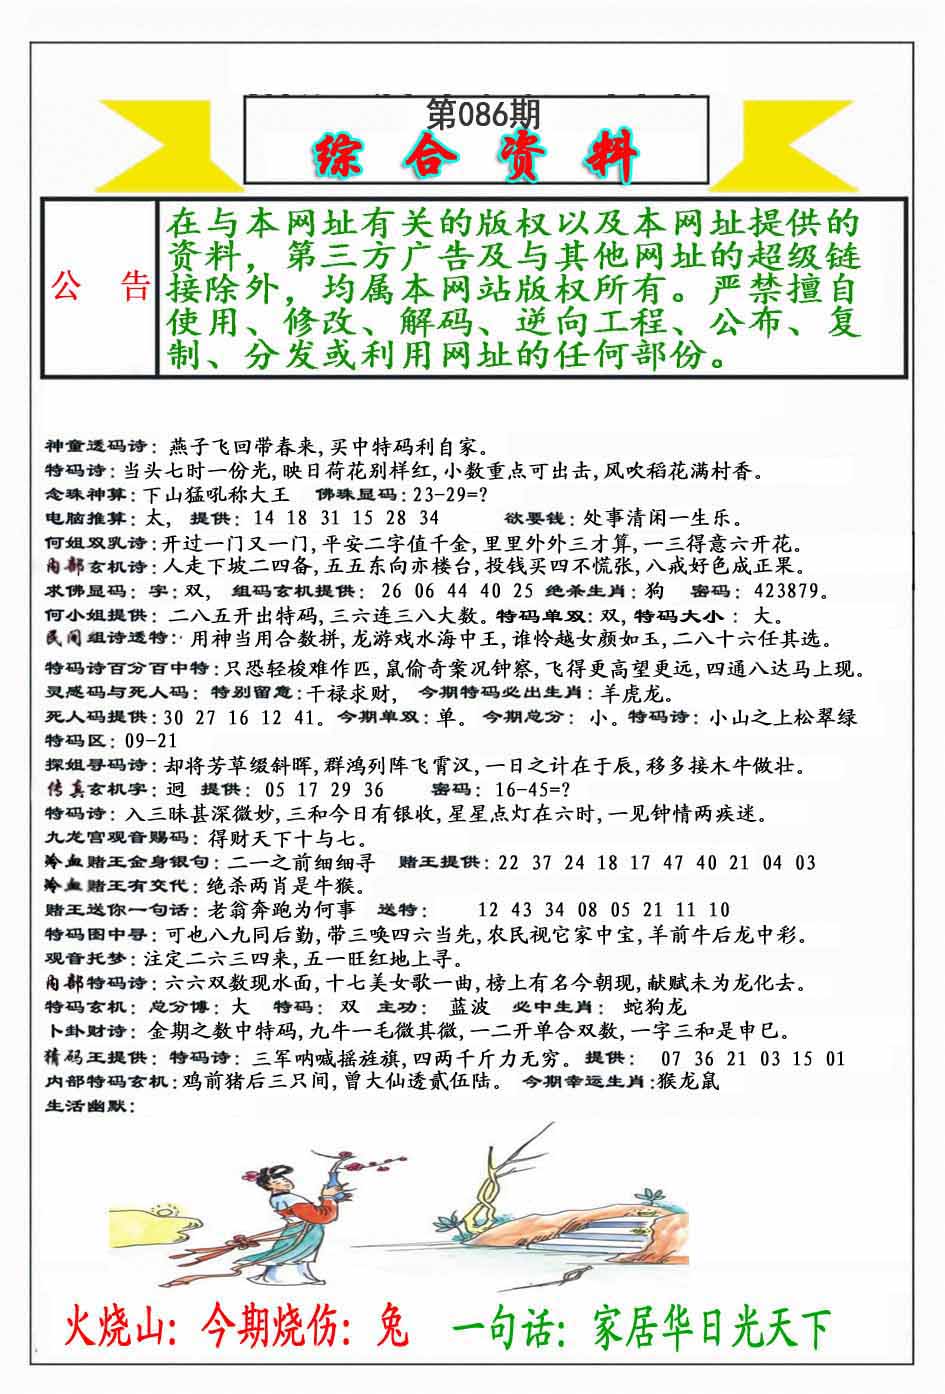 第086期
综合资料
公 告
在与本网址有关的版权以及本网址提供的
资料，第三方广告及与其他网址的超级链
接除外，均属本网站版权所有。严禁擅自
使用、修改、解码、逆向工程、公布、复
制、分发或利用网址的任何部份。
神童透码诗：燕子飞回带春来,买中特码利自家。
特码诗:当头七时一份光,映日荷花别样红,小数重点可出击,风吹稻花满村香。
念珠神算:下山猛吼称大王 佛珠显码:23-29=?
电脑推算:太, 提供: 14 18 31 15 28 34 欲要钱:处事清闲一生乐。
何姐双乳诗:开过一门又一门,平安二字值千金,里里外外三才算,一三得意六开花。
内部玄机诗:人走下坡二四备,五五东向亦楼台,投钱买四不慌张,八戒好色成正果。
求佛显码: 字:双, 组码玄机提供: 26 06 44 40 25 绝杀生肖:狗 密码: 423879。
何小姐提供: 二八五开出特码,三六连三八大数。特码单双:双,特码大小 : 大。
民间组诗透特: 用神当用合数拼,龙游戏水海中王,谁怜越女颜如玉,二八十六任其选。
特码诗百分百中特:只恐轻梭难作匹,鼠偷奇案况钟察,飞得更高望更远,四通八达马上现。
灵感码与死人码: 特别留意:干禄求财, 今期特码必出生肖:羊虎龙。
死人码提供:30 27 16 12 41。今期单双:单。 今期总分: 小。特码诗:小山之上松翠绿
特码区:09-21
探姐寻码诗:却将芳草缀斜晖,群鸿列阵飞霄汉,一日之计在于辰,移多接木牛做壮。
传真玄机字: 迥 提供: 05 17 29 36 密码: 16-45=?
特码诗:入三昧甚深微妙,三和今日有银收,星星点灯在六时,一见钟情两疾迷。
九龙宫观音赐码: 得财天下十与七。
冷血赌王金身银句:二一之前细细寻 赌王提供:22 37 24 18 17 47 40 21 04 03
冷血赌王有交代:绝杀两肖是牛猴。
赌王送你一句话: 老翁奔跑为何事 送特: 12 43 34 08 05 21 11 10
特码图中寻:可也八九同后勤,带三唤四六当先,农民视它家中宝,羊前牛后龙中彩。
观音托梦:注定二六三四来,五一旺红地上寻。
内部特码诗:六六双数现水面,十七美女歌一曲,榜上有名今朝现,献赋未为龙化去。
特码玄机: 总分博: 大 特码: 双 主功: 蓝波 必中生肖: 蛇狗龙
卜卦财诗: 金期之数中特码,九牛一毛微其微,一二开单合双数,一字三和是申巳。
猜码王提供: 特码诗: 三军呐喊摇旌旗,四两千斤力无穷。提供: 07 36 21 03 15 01
内部特码玄机:鸡前猪后三只间,曾大仙透貳伍陆。 今期幸运生肖:猴龙鼠
生活幽默:
火烧山: 今期烧伤: 兔 一句话: 家居华日光天下